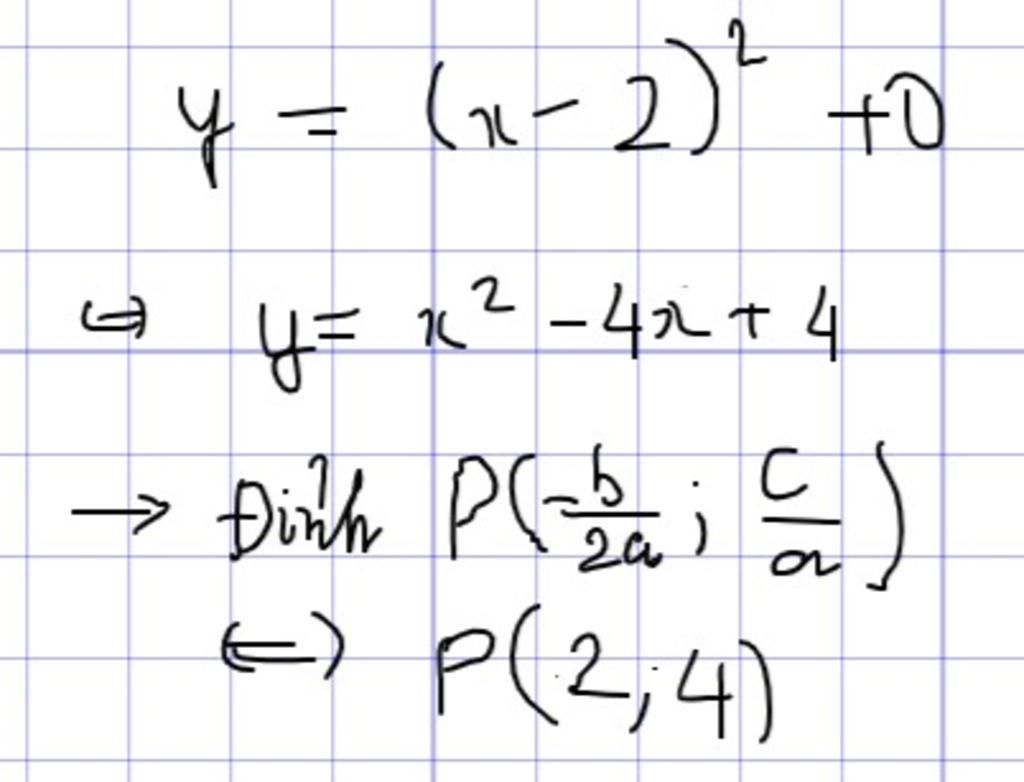 y = (x - 2)² + 0
⇔ y = x² - 4x + 4
→ Đỉnh P(-b/2a ; c/a)
⇔ P(2; 4)